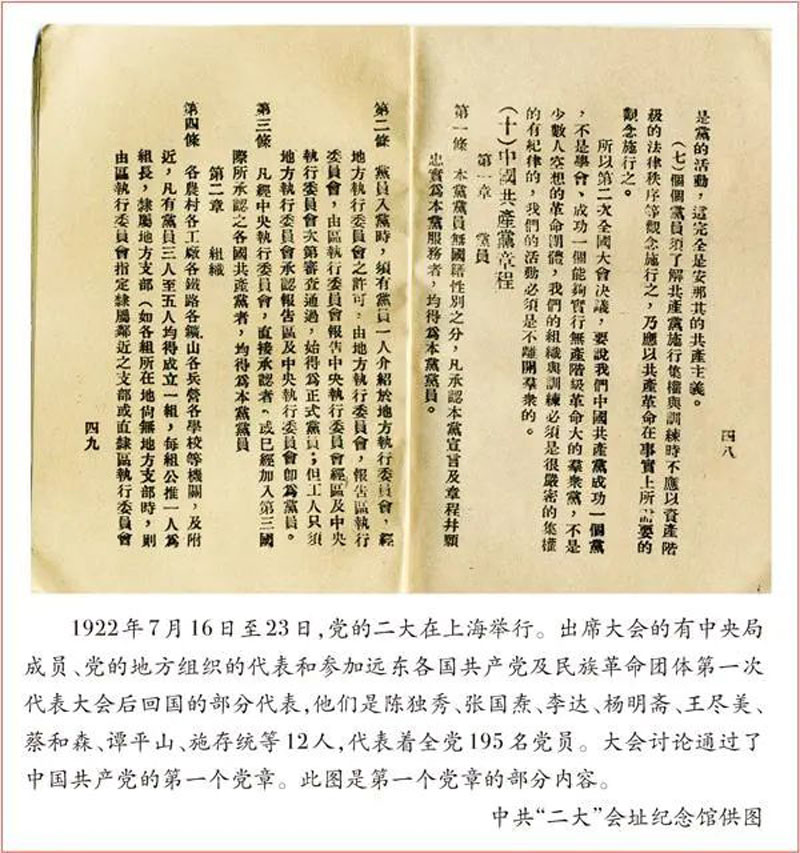 是黨的活動，這完全是安那其的共產主義。
（七）個個黨員須了解共產黨施行集權與訓練時不應以資產階
級的法律秩序等觀念施行之，乃應以共產革命在事實上所需要的
觀念施行之。
所以第二次全國大會決議，要說我們中國共產黨成功一個黨
，不是學會、成功一個能夠實行無產階級革命大的羣衆黨，不是
少數人空想的革命團體，我們的組織與訓練必須是很嚴密的集權
的有紀律的，我們的活動必須是不離開羣衆的。
（十）中國共產黨章程
第一章　黨員
第一條　本黨黨員無國籍性別之分，凡承認本黨宣言及章程幷願
忠實爲本黨服務者，均得爲本黨黨員。
四八
第二條　黨員入黨時，須有黨員一人介紹於地方執行委員會，經
地方執行委員會之許可，由地方執行委員會，報告區執行
委員會，由區執行委員會報告中央執行委員會經區及中央
執行委員會次第審查通過，始得爲正式黨員；但工人只須
地方執行委員會承認報告區及中央執行委員會卽爲黨員。
第三條　凡經中央執行委員會，直接承認者、或已經加入第三國
際所承認之各國共產黨者，均得爲本黨黨員
第二章　組織
第四條　各農村各工廠各鐵路各鑛山各兵營各學校等機關，及附
近，凡有黨員三人至五人均得成立一組，每組公推一人爲
組長，隸屬地方支部（如各組所在地尙無地方支部時，則
由區執行委員會指定隸屬鄰近之支部或直隸區執行委員會
四九
1922年7月16日至23日，党的二大在上海举行。出席大会的有中央局
成员、党的地方组织的代表和参加远东各国共产党及民族革命团体第一次
代表大会后回国的部分代表，他们是陈独秀、张国焘、李达、杨明斋、王尽美、
蔡和森、谭平山、施存统等12人，代表着全党195名党员。大会讨论通过了
中国共产党的第一个党章。此图是第一个党章的部分内容。
中共“二大”会址纪念馆供图